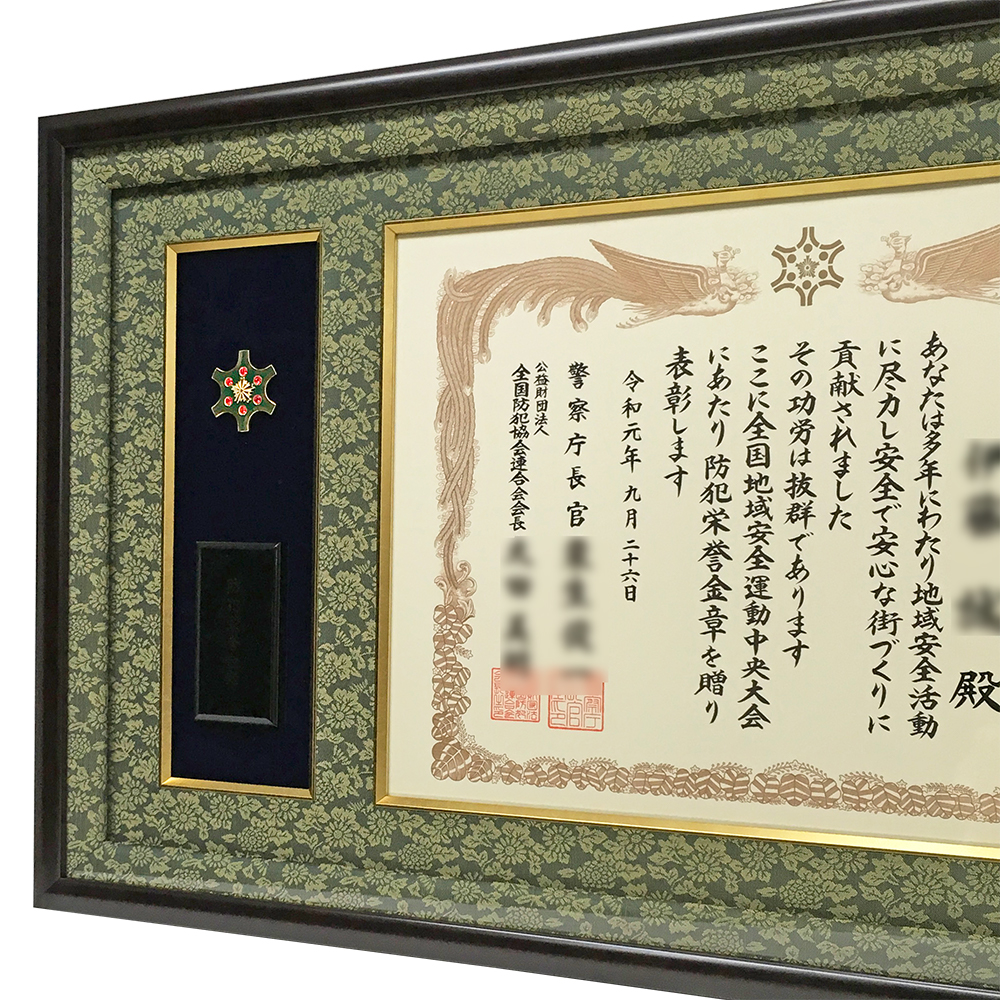 殿
あなたは多年にわたり地域安全活動
に尽力し安全で安心な街づくりに
貢献されました
その功労は抜群であります
ここに全国地域安全運動中央大会
にあたり防犯栄誉金章を贈り
表彰します
令和元年九月二十六日
警察庁長官
公益財団法人
全国防犯協会連合会会長